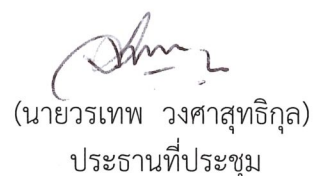 (นายวรเทพ วงศาสุทธิกุล)
ประธานที่ประชุม